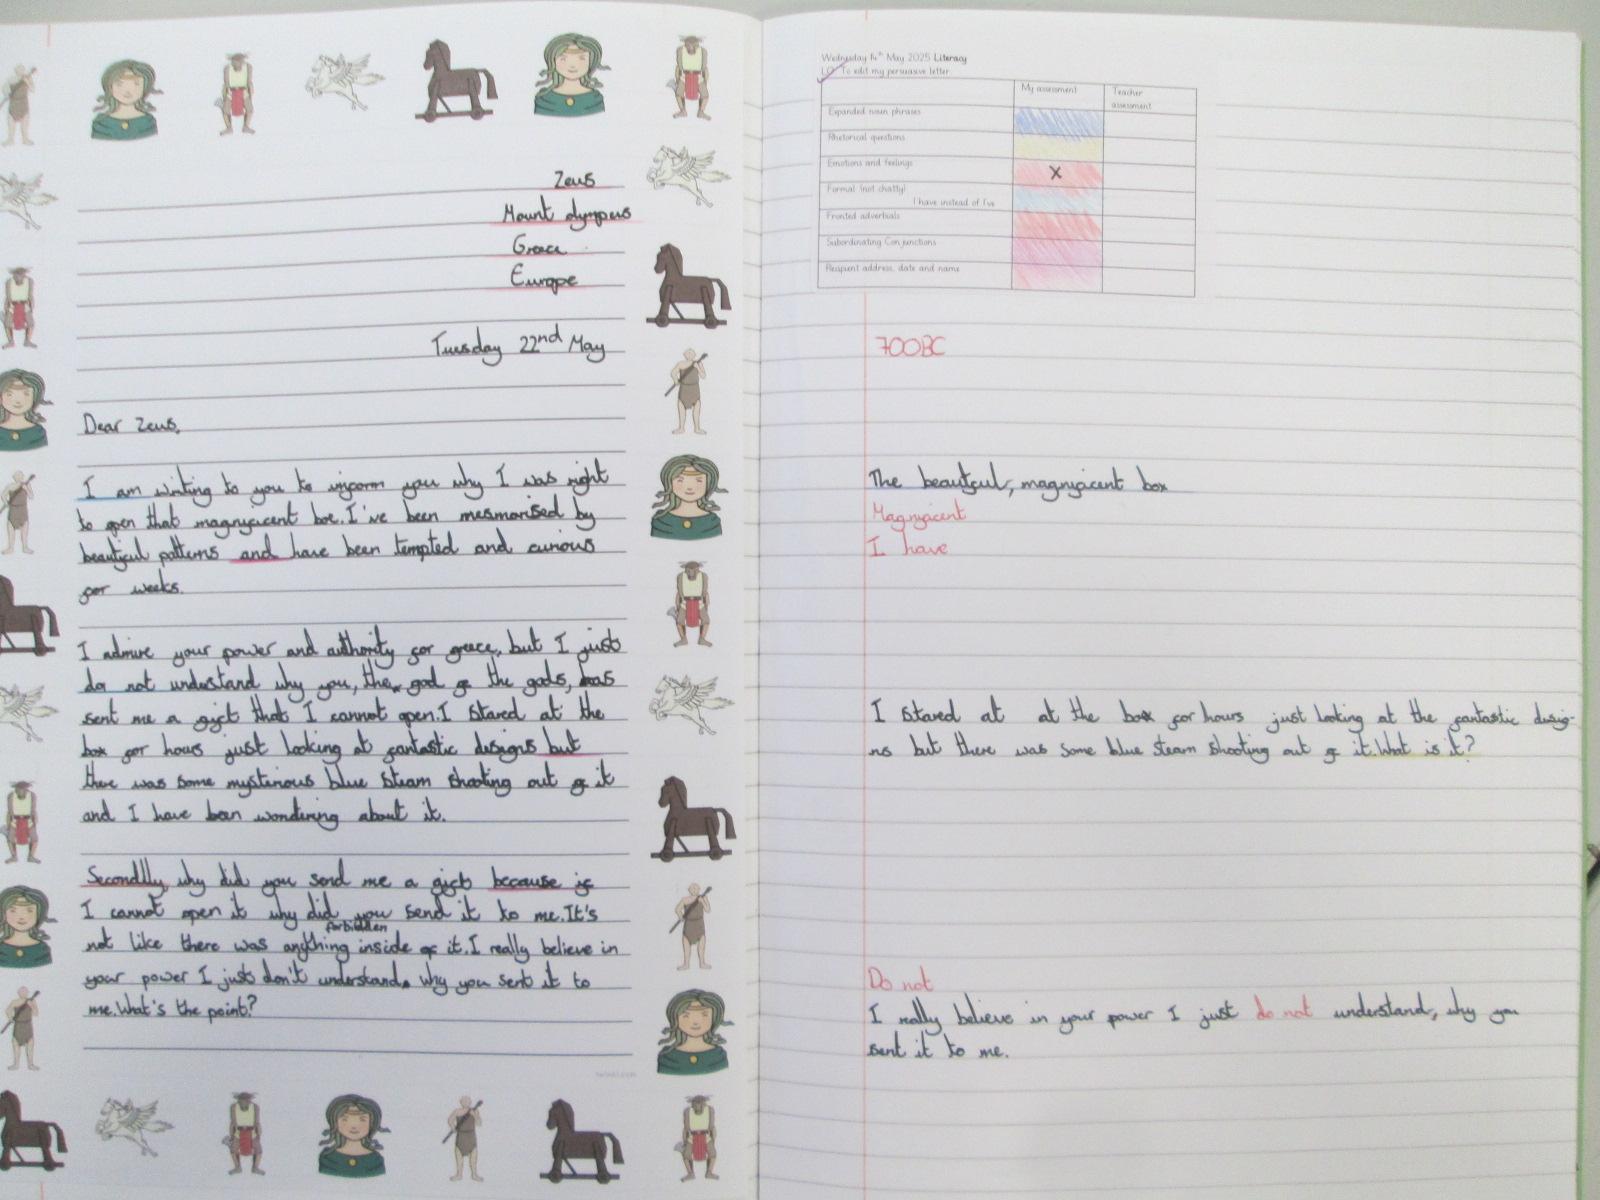 Zeus
Mount olympus
Greece
Europe
Tuesday 22nd May
Dear Zeus,
I am writing to you to inform you why I was right
to open that magnificent box. I've been mesmorised by
beautiful patterns and have been tempted and curious
for weeks.
I admire your power and authority for greece, but I just
do not understand why you, the god of the gods, has
sent me a gift that I cannot open. I stared at the
box for hours just looking at fantastic designs but
there was some mysterious blue steam shooting out of it
and I have been wondering about it.
Secondlly why did you send me a gift because if
I cannot open it why did you send it to me. It's
forbidden
not like there was anything inside of it. I really believe in
your power I just don't understand, why you sent it to
me. What's the point?
twinkl.com
Wednesday May 2025 Literacy
LO: To edit my persuasive letter
My assessment
Teacher assessment
Expanded noun phrases
Rhetorical questions
Emotions and feelings
X
Formal (not chatty)
I have instead of I've
Fronted adverbials
Subordinating Conjunctions
Recipient address, date and name
700BC
The beautiful, magnificent box
Magnificent
I have
I stared at at the box for hours just looking at the fantastic desig-
ns but there was some blue steam shooting out of it. What is it?
Do not
I really believe in your power I just do not understand, why you
sent it to me.